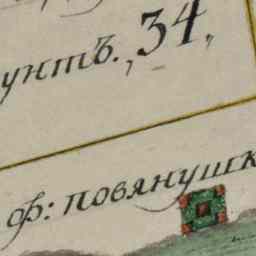 унтъ. 34,
ф: повянушк